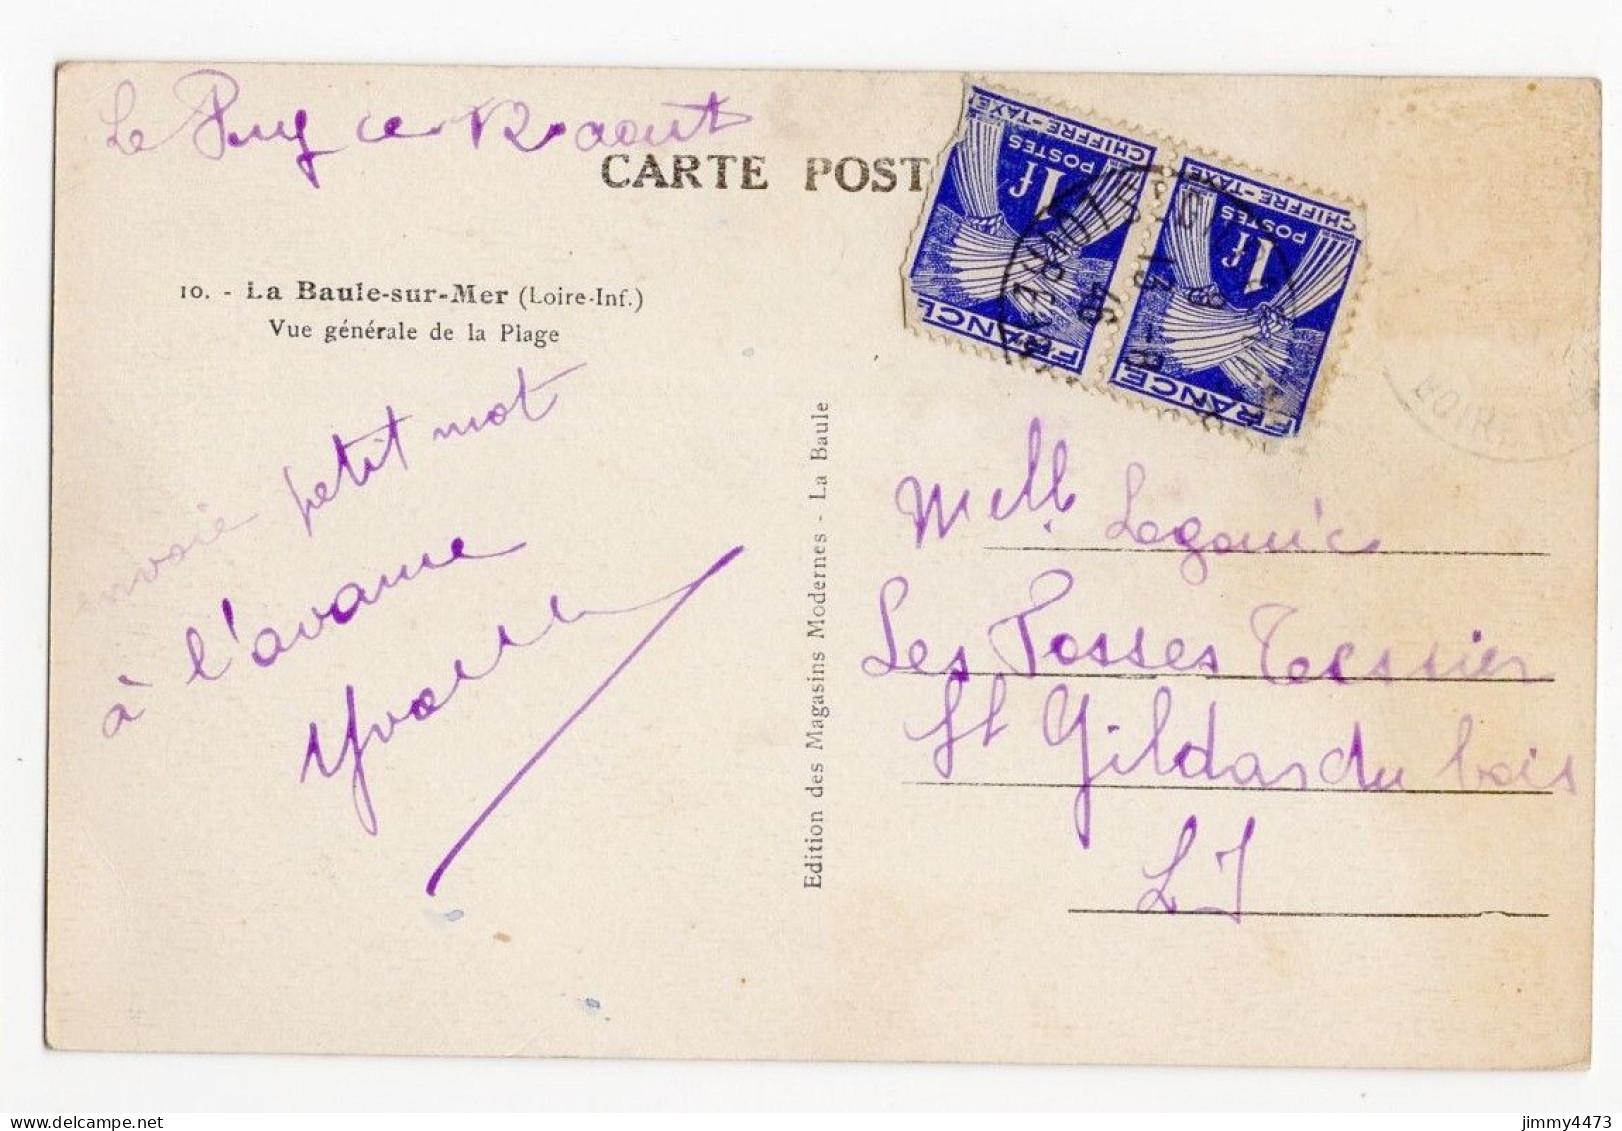 Le Puy ce 12 aout
CARTE POST
10. - La Baule-sur-Mer (Loire-Inf.)
Vue générale de la Plage
envoie petit mot
à l'avance
Yvonne
Edition des Magasins Modernes - La Baule
CHIFFRE-TAXE
POSTES
1f
FRANCE
CHIFFRE-TAXE
POSTES
1f
FRANCE
13 - 8
46
LOIRE
Melle
Les Fosses Tessier
St Gildas du bois
L I
jimmy4473